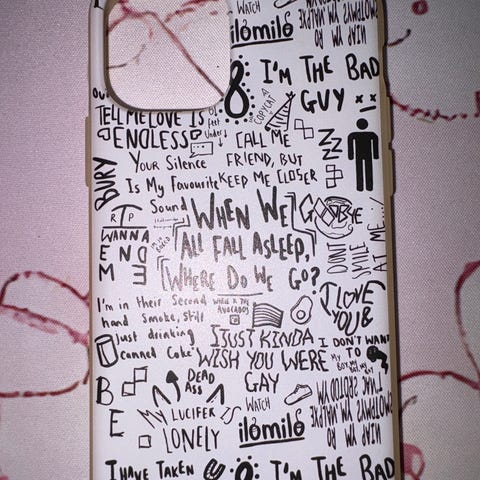 WATCH
ilomilo
8
I'M THE BAD
GUY
COPYCAT
TELL ME LOVE IS
ENDLESS
8
feet
Under
CALL ME
FRIEND, BUT
KEEP ME CLOSER
Your Silence
Is My Favourite
Sound
BURY
ZZZ
RIP
WHEN WE
ALL FALL ASLEEP,
WHERE DO WE GO?
GOODBYE
DONT
SMILE
AT ME...!
WANNA
END
ME
I'm in their Second
hand Smoke, Still
Just drinking
canned Coke
WHERE R THE
AVOCADOS
I LOVE
YOU
8
I JUST KINDA
WISH YOU WERE
GAY
I DON'T WANT
TO
B
E
DEAD
ASS
MY LUCIFER IS
LONELY
WATCH
ilomilo
I HAVE TAKEN
8
I'M THE BAD